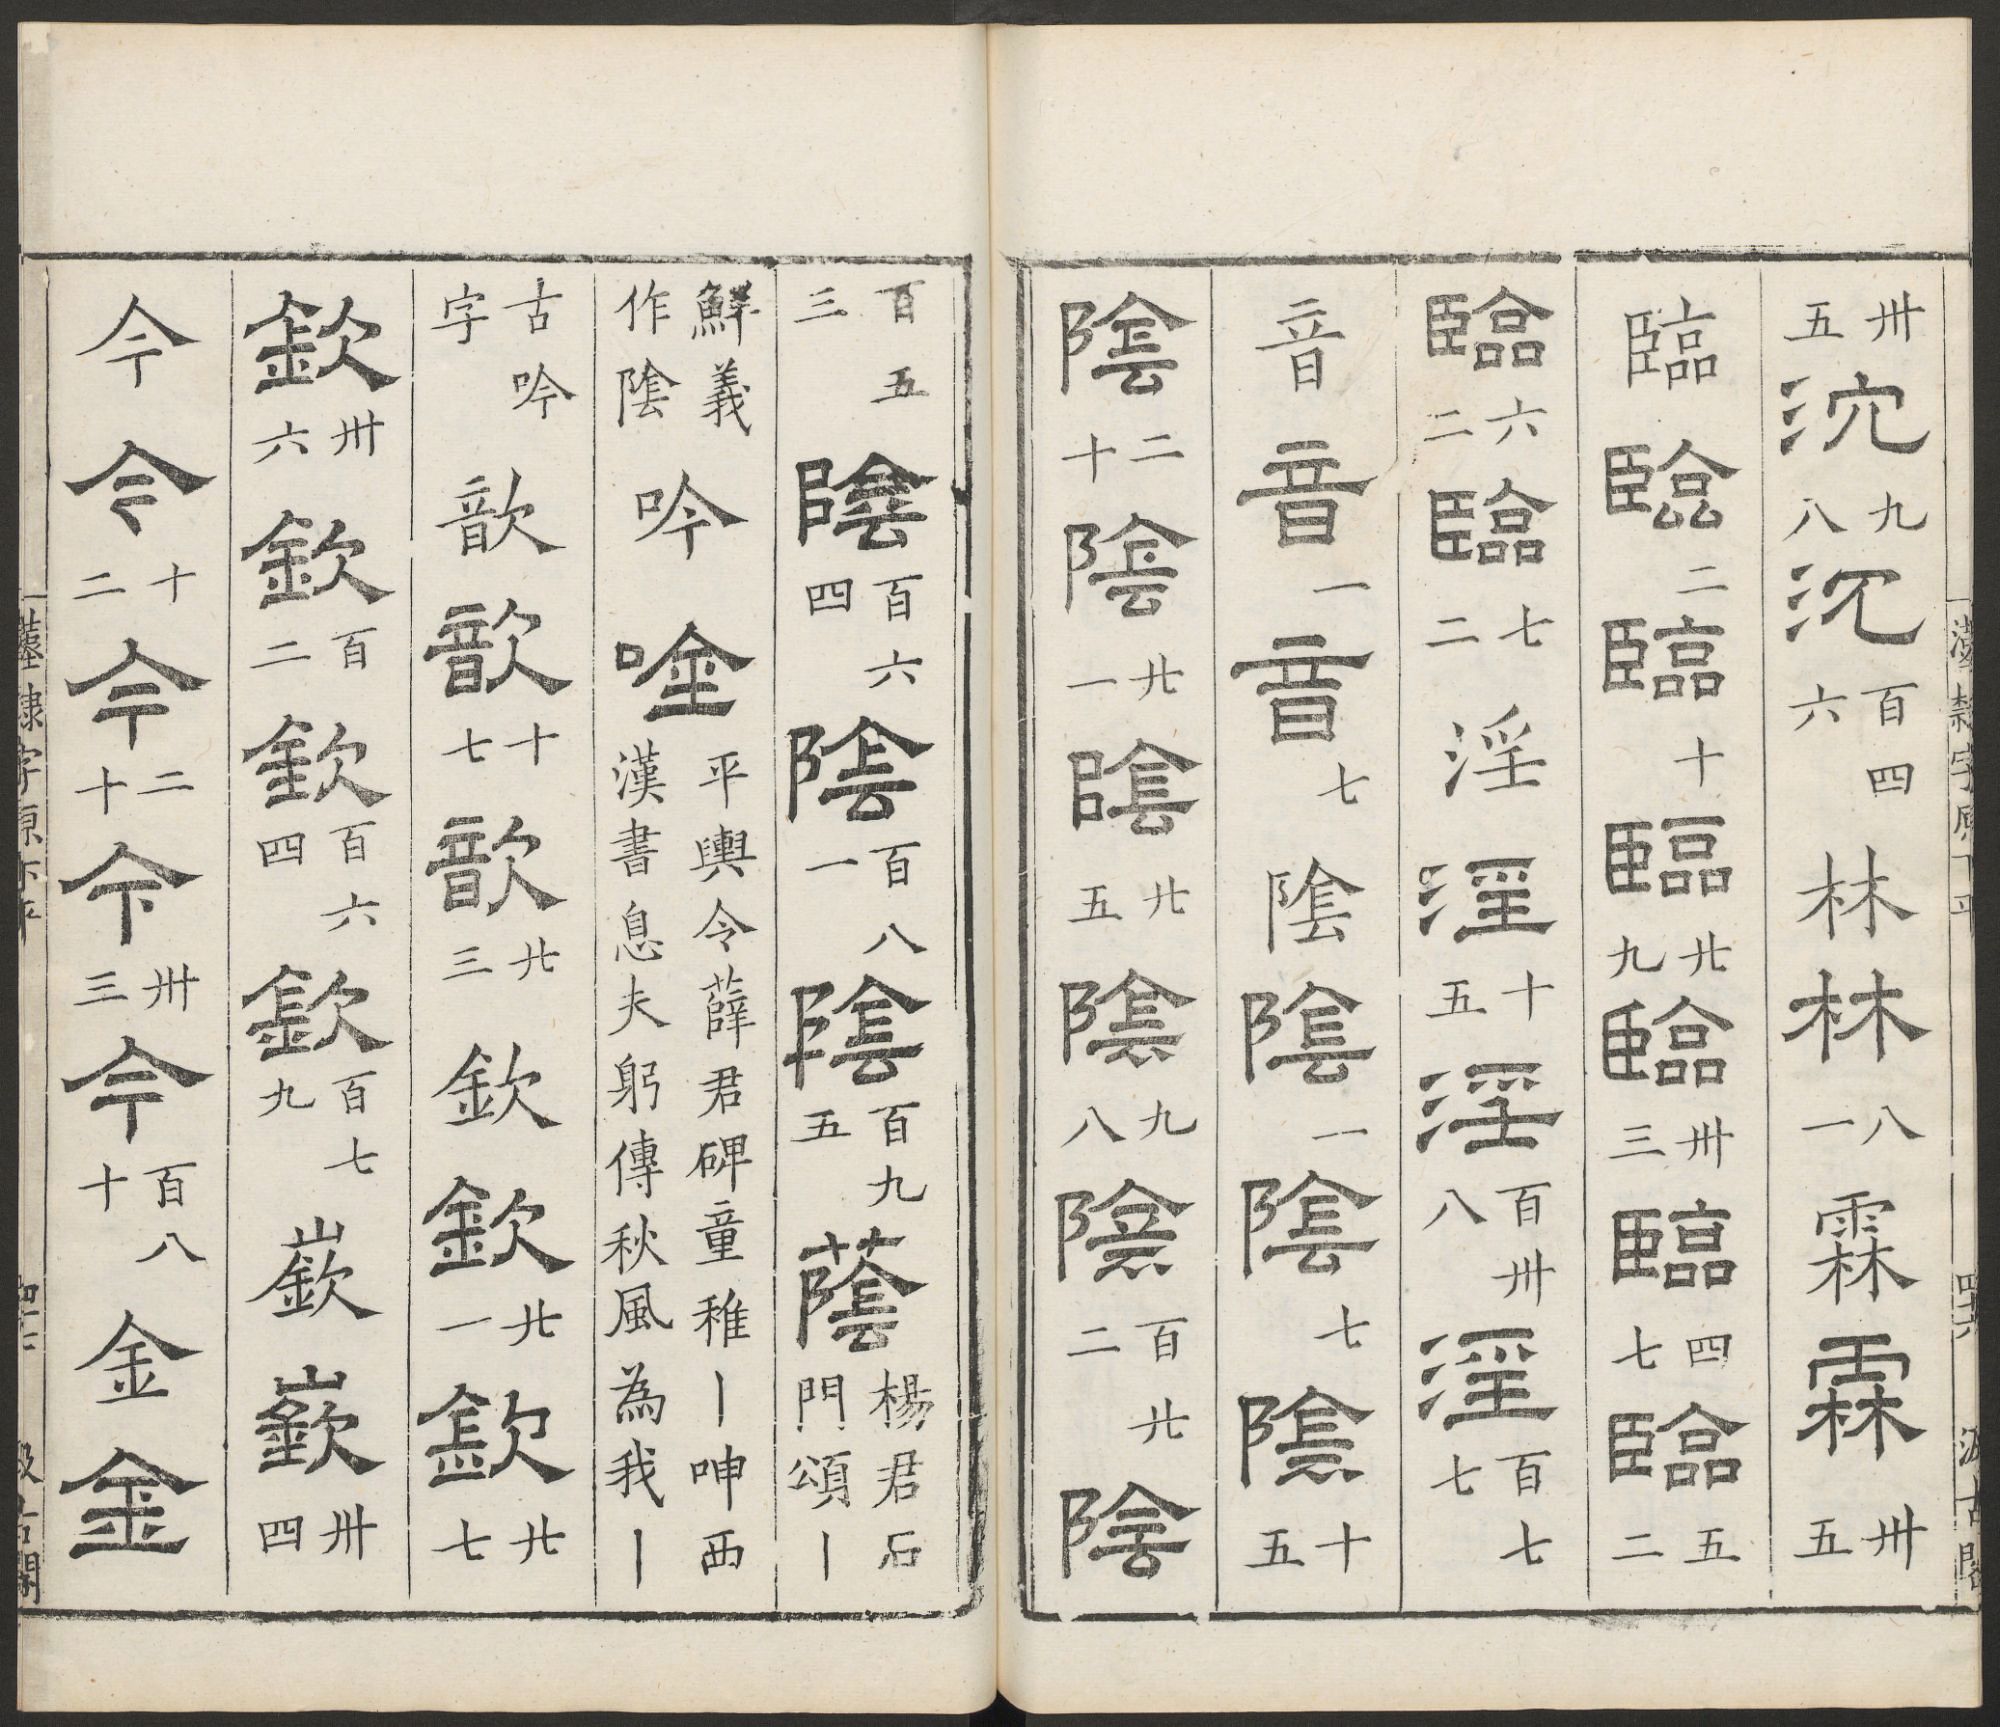 卅五沉九八沉百四六林林八一霖霖卅五
臨臨二臨十臨廿九臨卅三臨四七臨五二
臨六二臨七二淫淫十五淫百卅八淫百七七
音音一音七陰陰一陰七陰十五
陰二十陰廿一陰廿五陰九八陰百廿二陰
百五三陰百六四陰百八一陰百九五蔭楊君石門頌丨
鮮義作陰吟唫平輿令薛君碑童稚丨呻西漢書息夫躬傳秋風為我丨
古吟字歆歆十七歆廿三欽欽廿一欽廿七
欽卅六欽百二欽百六四欽百七九嶔嶔卅四
今今十二今二十今卅三今百八十金金
漢隸字原下平 四十六 汲古閣